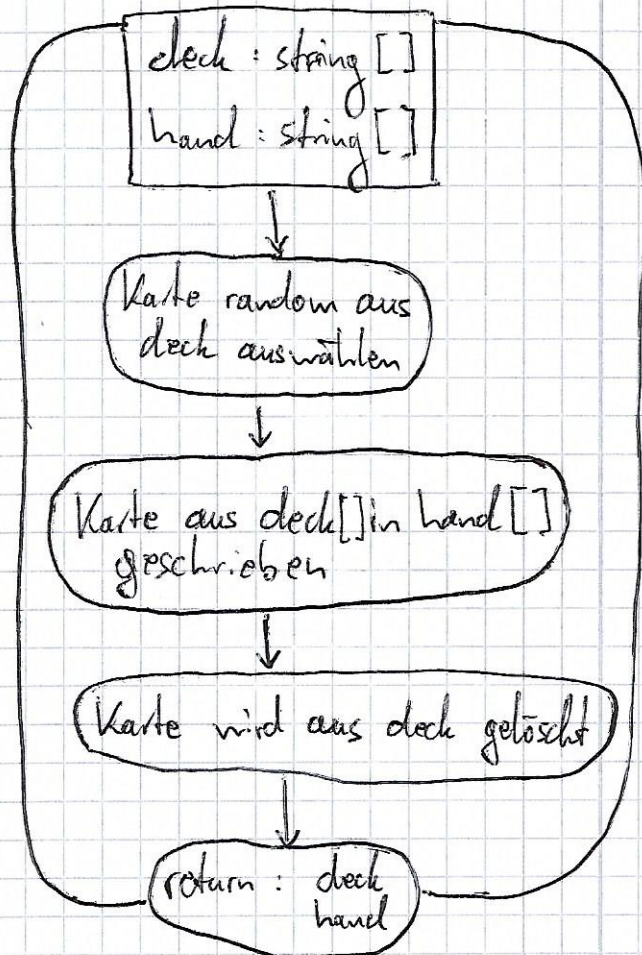 deck : string []
hand : string []
Karte random aus
deck auswählen
Karte aus deck[] in hand []
geschrieben
Karte wird aus deck gelöscht
return : deck
hand